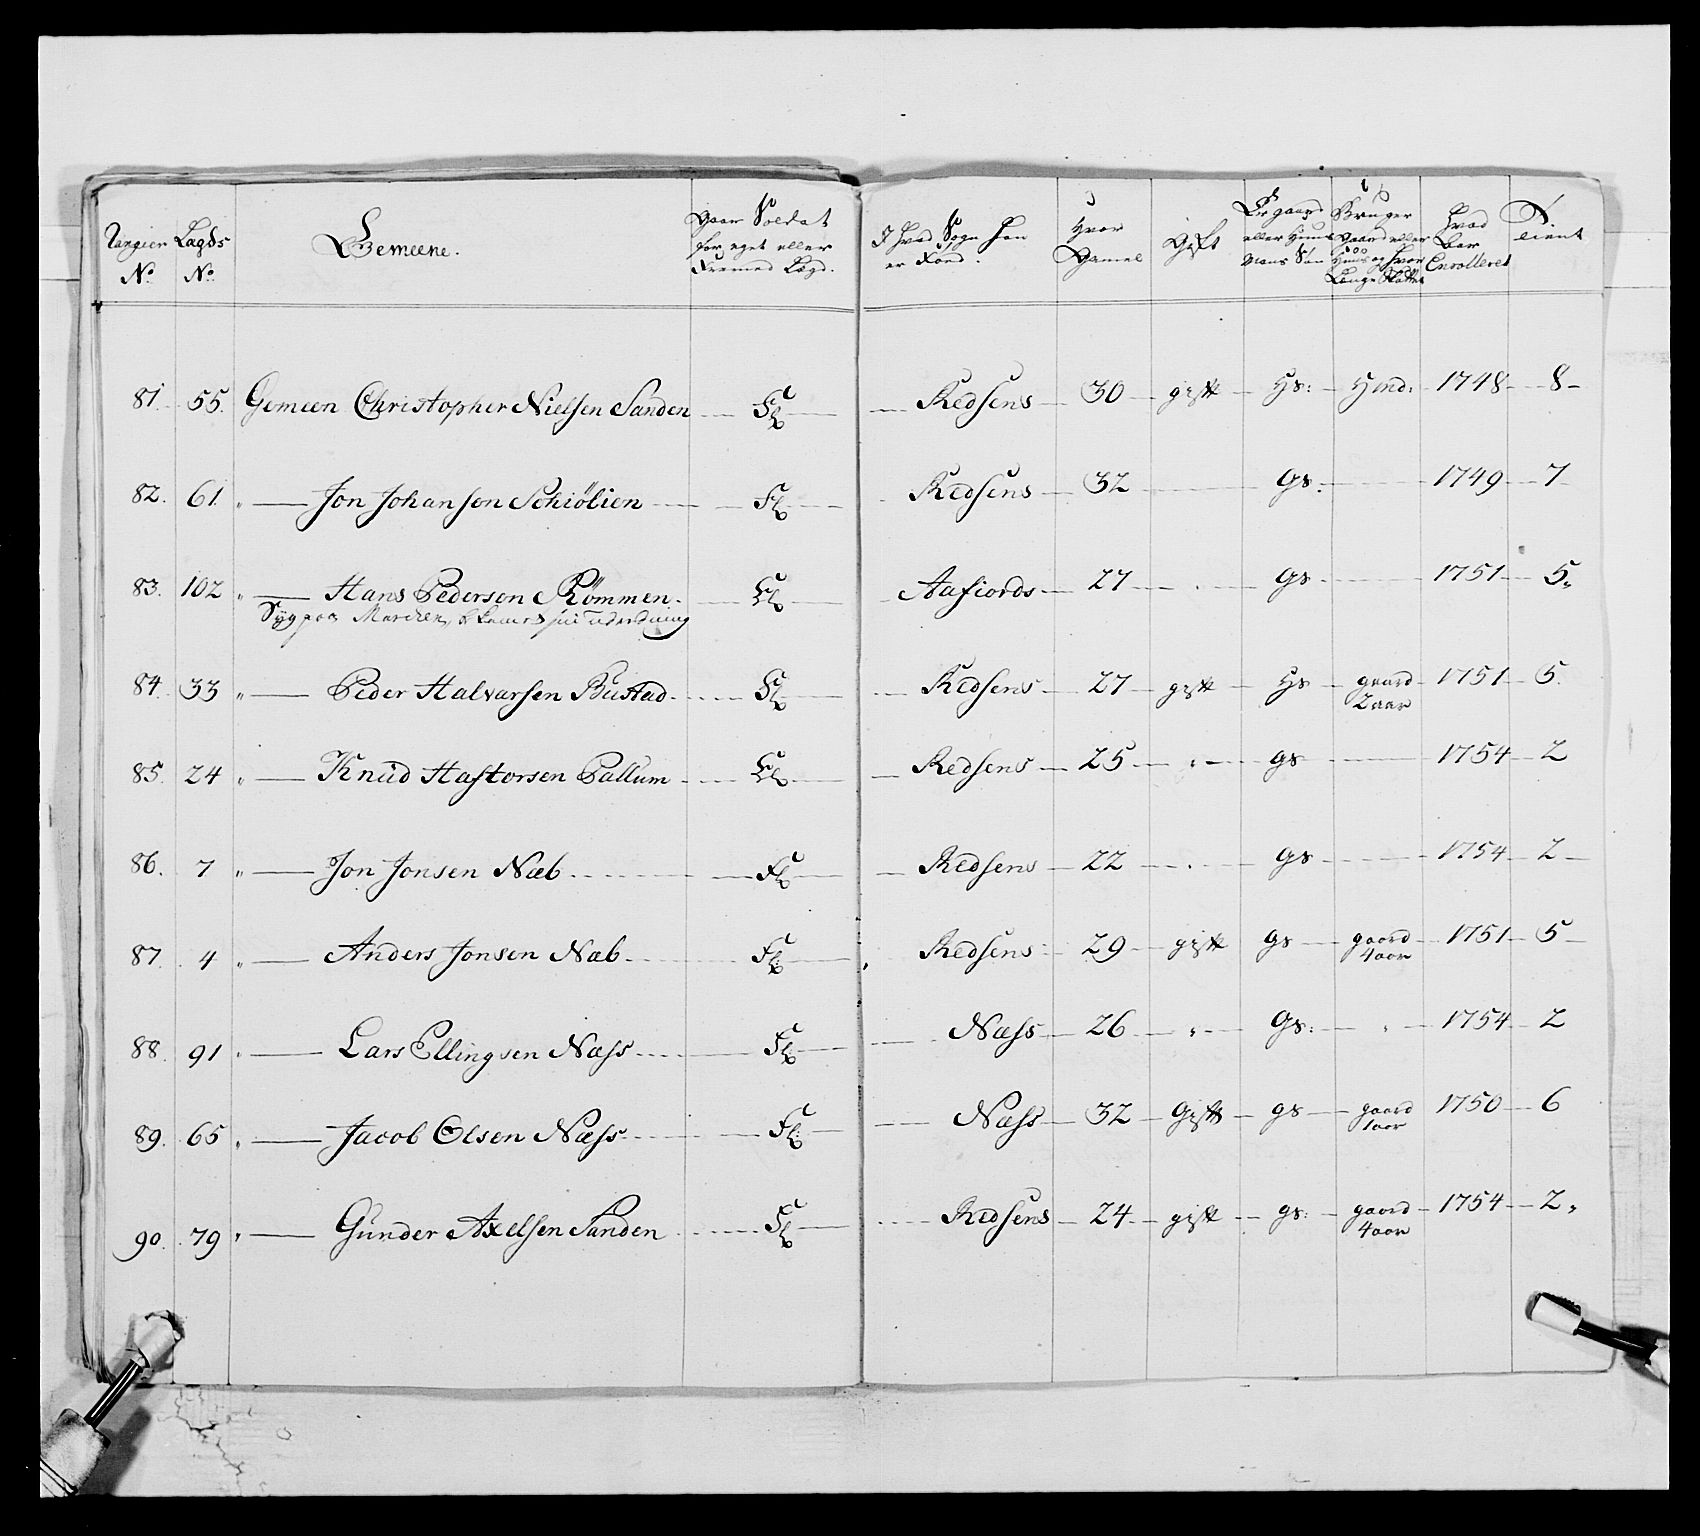 Rangier No | Lagds No | Gemeene. | Gaar Soldat for eget eller Fremed Lægd. | I hvad Sogn han er Fød. | Hvor Gamel | Gift | Er gaard eller Huus Mans Søn | Bruger Gaard eller Huus og hvor Længe Skattet | Hvad Aar Enrolleret | Tient
81. | 55. | Gemeen Christopher Nielsen Sanden | Fl | Redsens | 30 | gift | Hs: | Hmd: | 1748 | 8
82. | 61. | " Jon Johanson Schiölien | Fl | Redsens | 32 | | Gs. | | 1749 | 7
83. | 102 | " Hans Pedersen Römmen. | El | Aafiords | 27 | | Gs | | 1751 | 5
Syg paa Marchen,
84. | 33 | " Peder Halvarsen Bustad | Fl | Redsens | 27 | gift | Hs | gaard 2 aar | 1751 | 5
85. | 24 | " Knud Hastorsen Pallum | El | Redsens | 25 | " | gs | | 1754 | 2
86. | 7 | " Jon Jonsen Næb | Fl | Redsens | 22 | | Gs | | 1754 | 2
87. | 4 | " Anders Jonsen Næb | Fl. | Redsens | 29 | gift | gs | gaard 4 aar | 1751 | 5
88. | 91 | " Lars Ellingsen Næss | Fl | Næss | 26 | " | Gs: | " | 1754 | 2
89. | 65 | " Jacob Olsen Næss | Fl. | Næss | 32 | Gift | gs | gaard 1 aar | 1750 | 6
90. | 79 | " Gunder Axelsen Sanden | Fl | Redsens | 24 | gift | gs: | gaard 4 aar | 1754 | 2